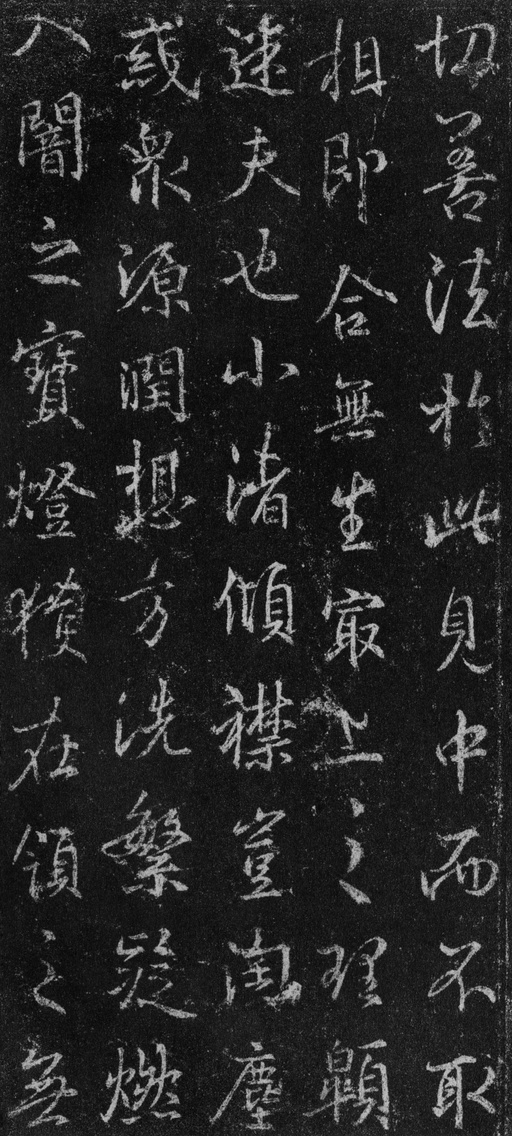 切善法於此見中而不取
相即合無生㝡上之理顯
迷夫也小渚傾襟豈淘塵
惑衆源潤想方洗繁疑燃
入闇之寶燈獷在領之無